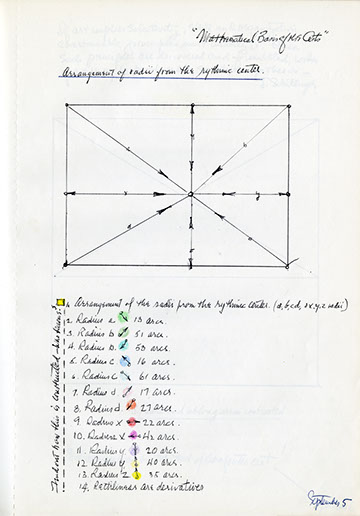 "Mathematical Basis of the Arts"
Arrangement of radii from the rythmic center.
c
b
x
y
a
1. Arrangement of the radii from the rythmic center. (a, b, c, d, x, y, z radii)
2. Radius a 13 arcs.
3. Radius b 51 arcs.
4. Radius b. 53 arcs.
5. Radius c 16 arcs.
6. Radius c 61 arcs.
7. Radius d 17 arcs.
8. Radius d. 27 arcs.
9. Radius x 22 arcs.
10. Radius x 42 arcs.
11. Radius y 20 arcs.
12. Radius y 40 arcs.
13 Radius z 35 arcs.
14. are derivatives
how this is constructed
September 5